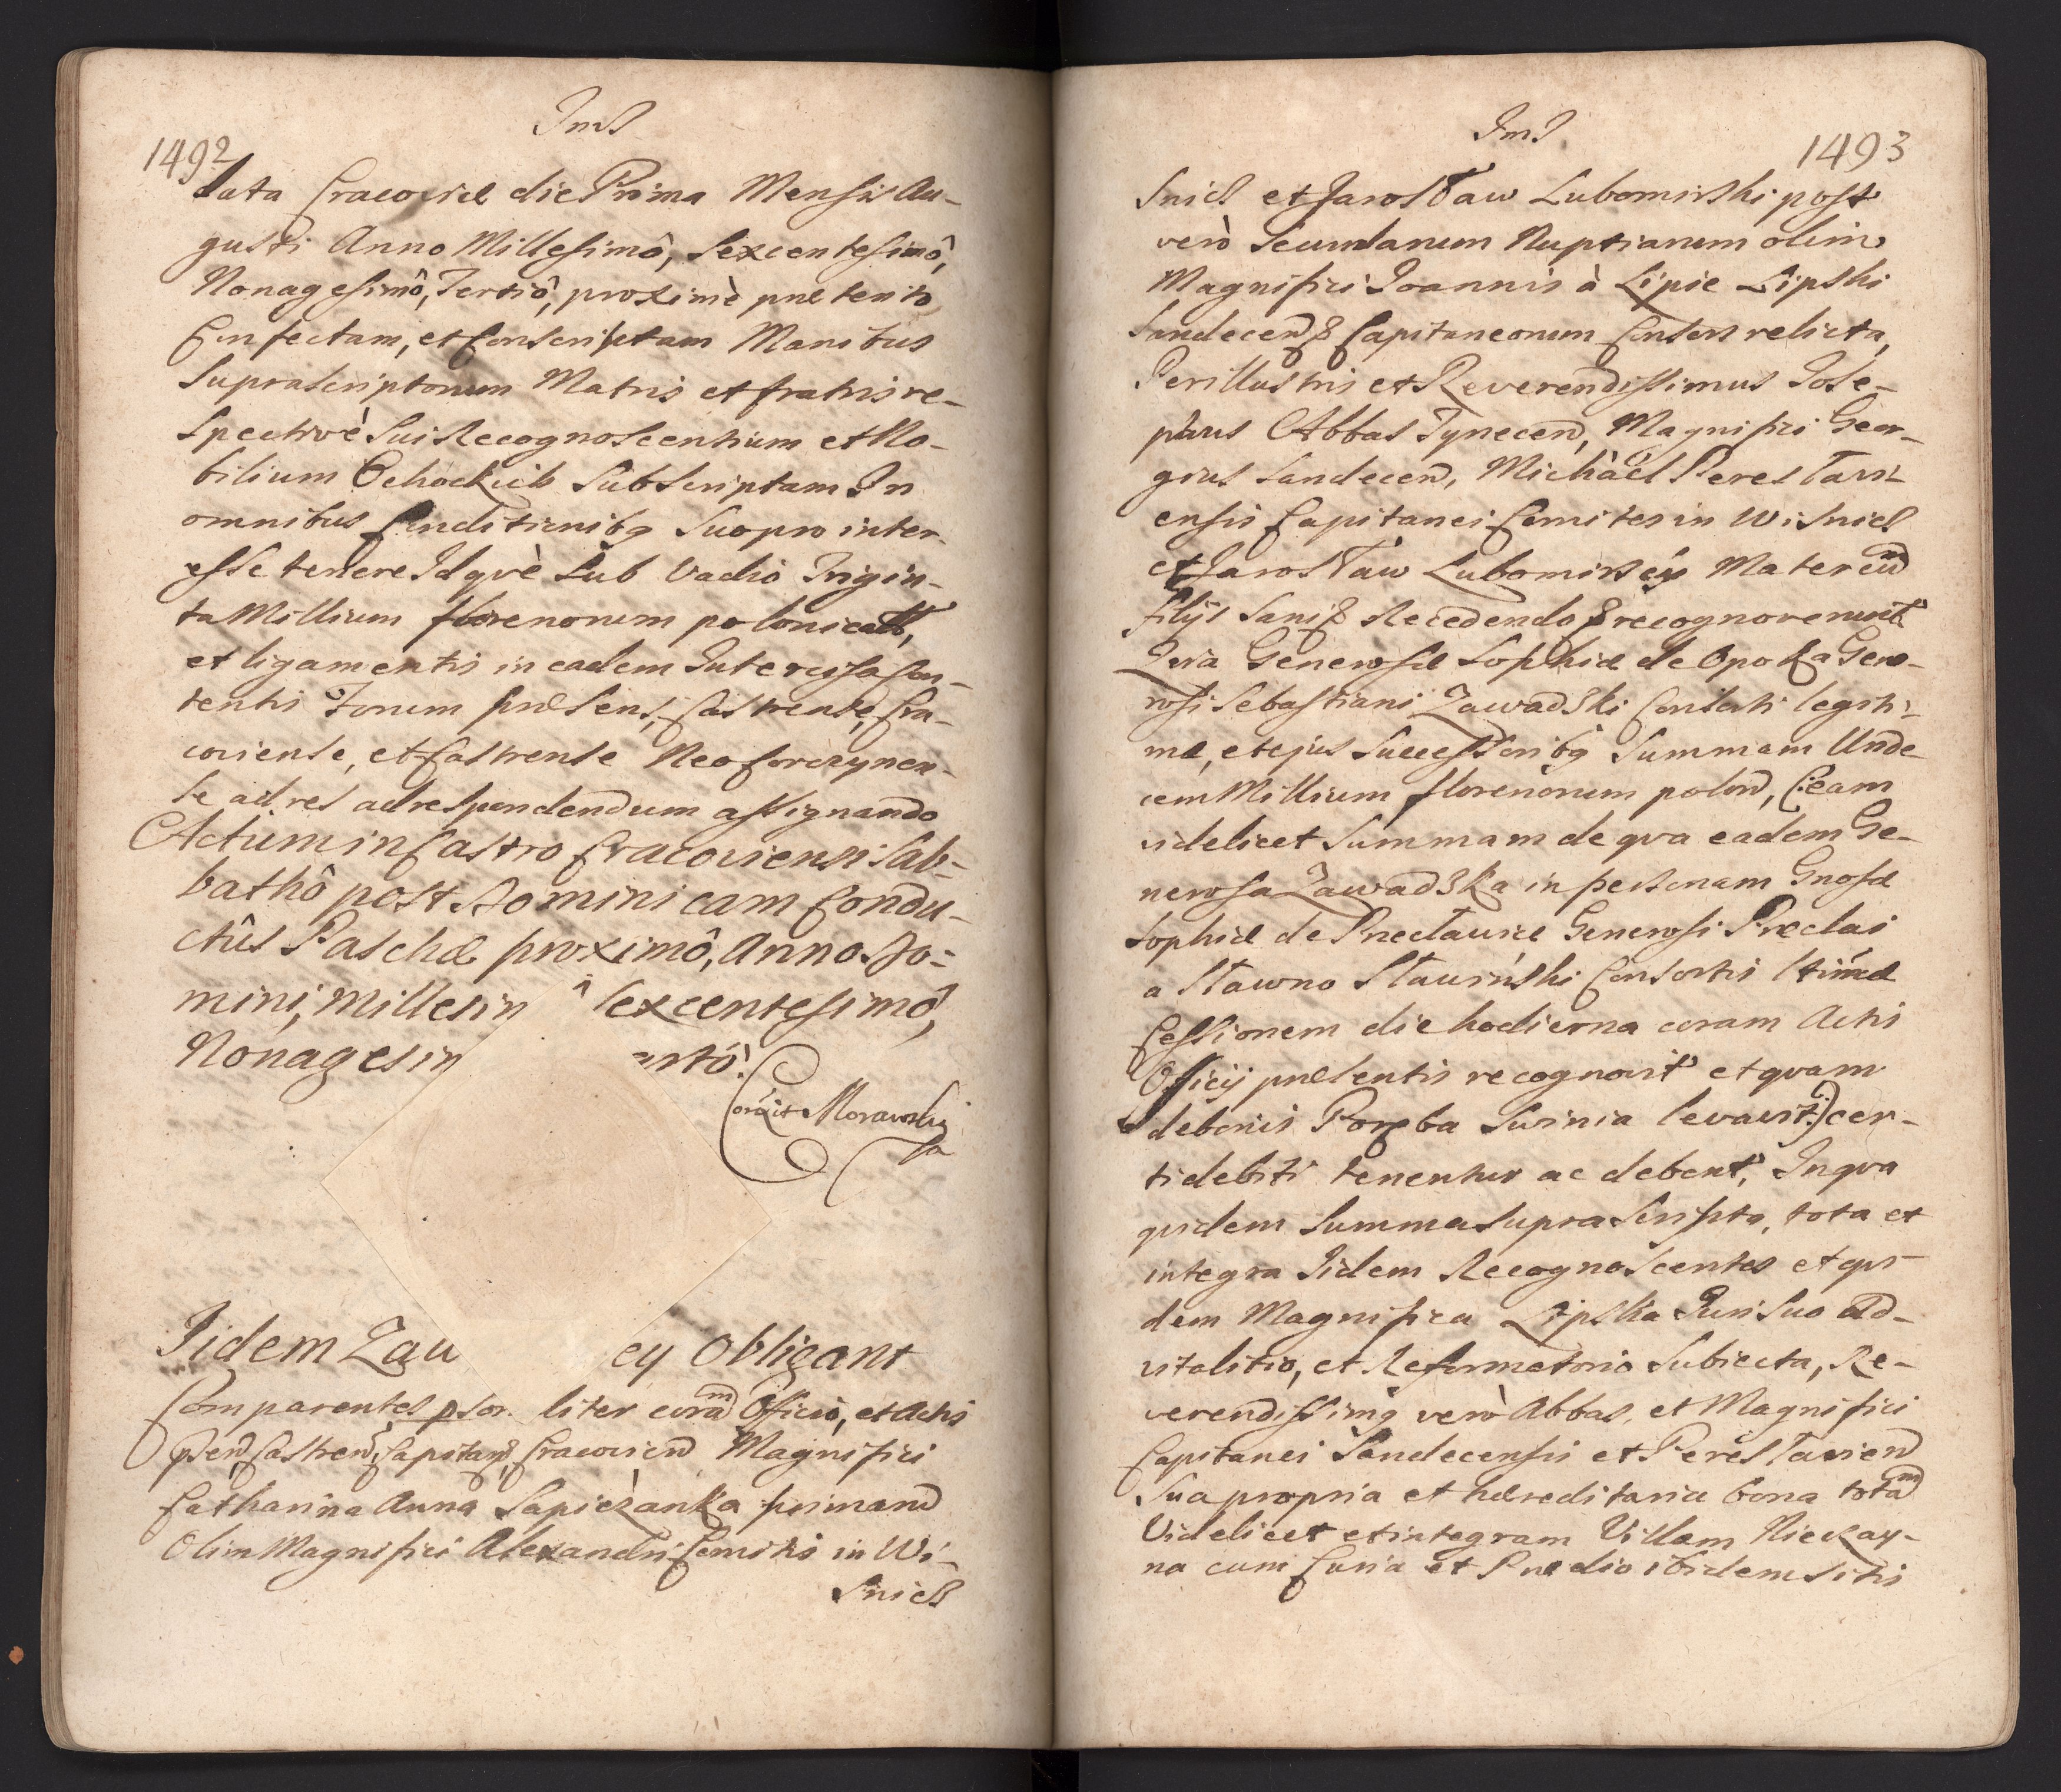 1492
data Cracoviæ die Prima Mensis Au-
gusti Anno Millesimô, Sexcentesimô,
Nonagesimô, Tertiô, proximè præterito
Confectam, et Conscriptam Manibus
Suprascriptorum Matris et fratris re-
spectivè sui Recognoscentium et No-
bilium Ochockich Subscriptam In
omnibus Conditionibq suo pro inter
esse tenere Idqvè Sub Vadio Trigin-
ta Millium florenorum
et ligamentis in eadem Intercisa Con-
tentis Forum præsens, Castrense, Cra-
coviense, et Castrense Neoforczynen-
se ad res ad respondendum assignando
Actum in Castro Cracoviensi Sab-
bathô post Dominicam Condu-
ctûs Paschæ proximô, Anno Do-
mini, Millesim ô Sexcentesimô,
Nonagesim artô.
Morawski
Iidem Zaw ey Obligant
Comparentes ꝑson liter coram Officio, et Actis
pñ Castreñ, Capitañ, Cracovieñ Magnifici
Catharina Anna Sapiezanka primand
Olim Magnifici Alexandri Comitis in Wi-
snicz
1493
snicz et Jarosław Lubomirski post
verò Secundarum Nuptiarum olim
Magnifici Joannis à Lipie Lipski
Sandeceñ & Capitaneorum Consors relicta,
Perillustris et Reverendissimus Jose-
phus Abbas Tyneceñ, Magnifici Geor-
gius Sandeceñ, Michäel Peresłavi-
ensis Capitanei Comites in Wisnicz
et Jarosław Lubomirscy Mater cum
filijs Sani & Recedendo & recognoverunt
Qvia Generosæ Sophiæ de Opoka Gene-
rosi Sebastiani Zawadzki Consorti legiti-
mæ, et ejus Successoribq Summam Unde-
cem Millium florenorum poloñ, (:eam
videlicet Summam de qva eadem Ge-
nerosa Zawadzka in personam Gnosæ
Sophiæ de Precławice Generosi Preclai
a Sławno Sławiński Consortis ltimæ
Cessionem die hodierna coram Actis
Officij præsentis recognovit et qvam
de bonis Poręba Swinia levavit:) cer-
ti debiti tenentur ac debent, In qva
qvidem Summa supra Scripta, tota et
integra Iidem Recognoscentes et qvi-
dem Magnifica Lipska Juri Suo Ad-
vitalitio, et Reformatorio Subiecta, Re-
verendissimq verò Abbas, et Magnifici
Capitanei Sandecensis et Peresłavieñ
Sua propria et hæreditaria bona totam
Videlicet et integram Villam Nieczay-
na cum Curia et Prædio ibidem sitis